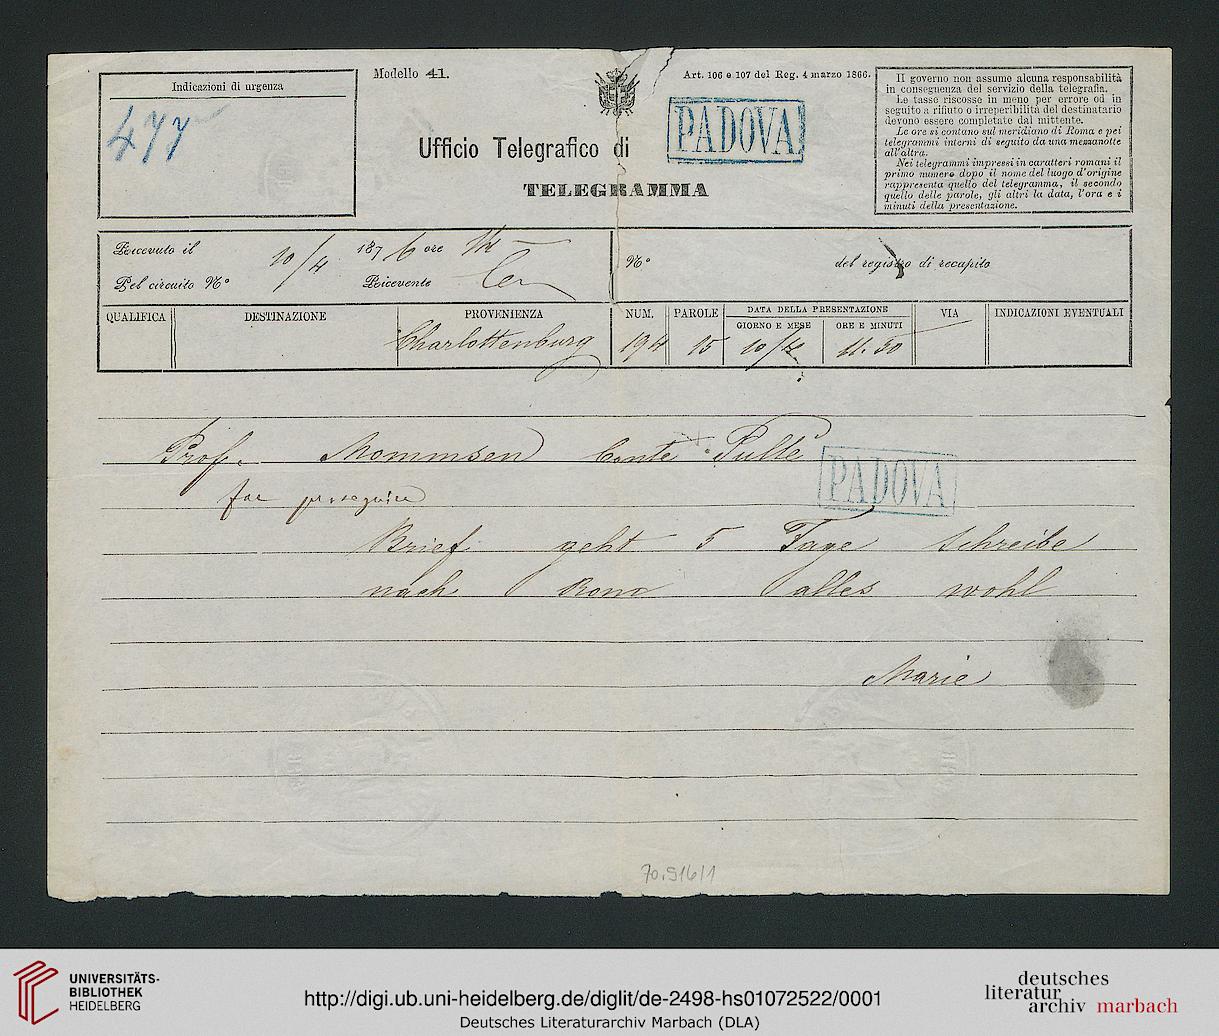 Indicazioni di urgenza
477
Modello 41.
Art. 106 e 107 del Reg. 4 marzo 1866.
Ufficio Telegrafico di
PADOVA
TELEGRAMMA
Il governo non assume alcuna responsabilità
in conseguenza del servizio della telegrafia.
Le tasse riscosse in meno per errore od in
seguito a rifiuto o irreperibilità del destinatario
devono essere completate dal mittente.
Le ore si contano sul meridiano di Roma e pei
telegrammi interni di seguito da una mezzanotte
all'altra.
Nei telegrammi impressi in caratteri romani il
primo numero dopo il nome del luogo d'origine
rappresenta quello del telegramma, il secondo
quello delle parole, gli altri la data, l'ora e i
minuti della presentazione.
Ricevuto il 10/4 1876 ore
Pel circuito N° Ricevente
N° del registro di recapito
QUALIFICA DESTINAZIONE PROVENIENZA NUM. PAROLE DATA DELLA PRESENTAZIONE VIA INDICAZIONI EVENTUALI
GIORNO E MESE ORE E MINUTI
Charlottenburg 194 15 10/4 11.50
Prof. Mommsen Conte Pullè
PADOVA
far proseguire
Brief geht 5 Tage schreibe
nach alles wohl
Marie
70.916/1
UNIVERSITÄTS-
BIBLIOTHEK
HEIDELBERG
http://digi.ub.uni-heidelberg.de/diglit/de-2498-hs01072522/0001
Deutsches Literaturarchiv Marbach (DLA)
deutsches
literatur
archiv marbach